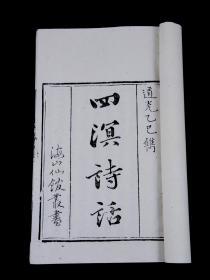 道光乙巳鐫
四溟詩話
海山仙館叢書